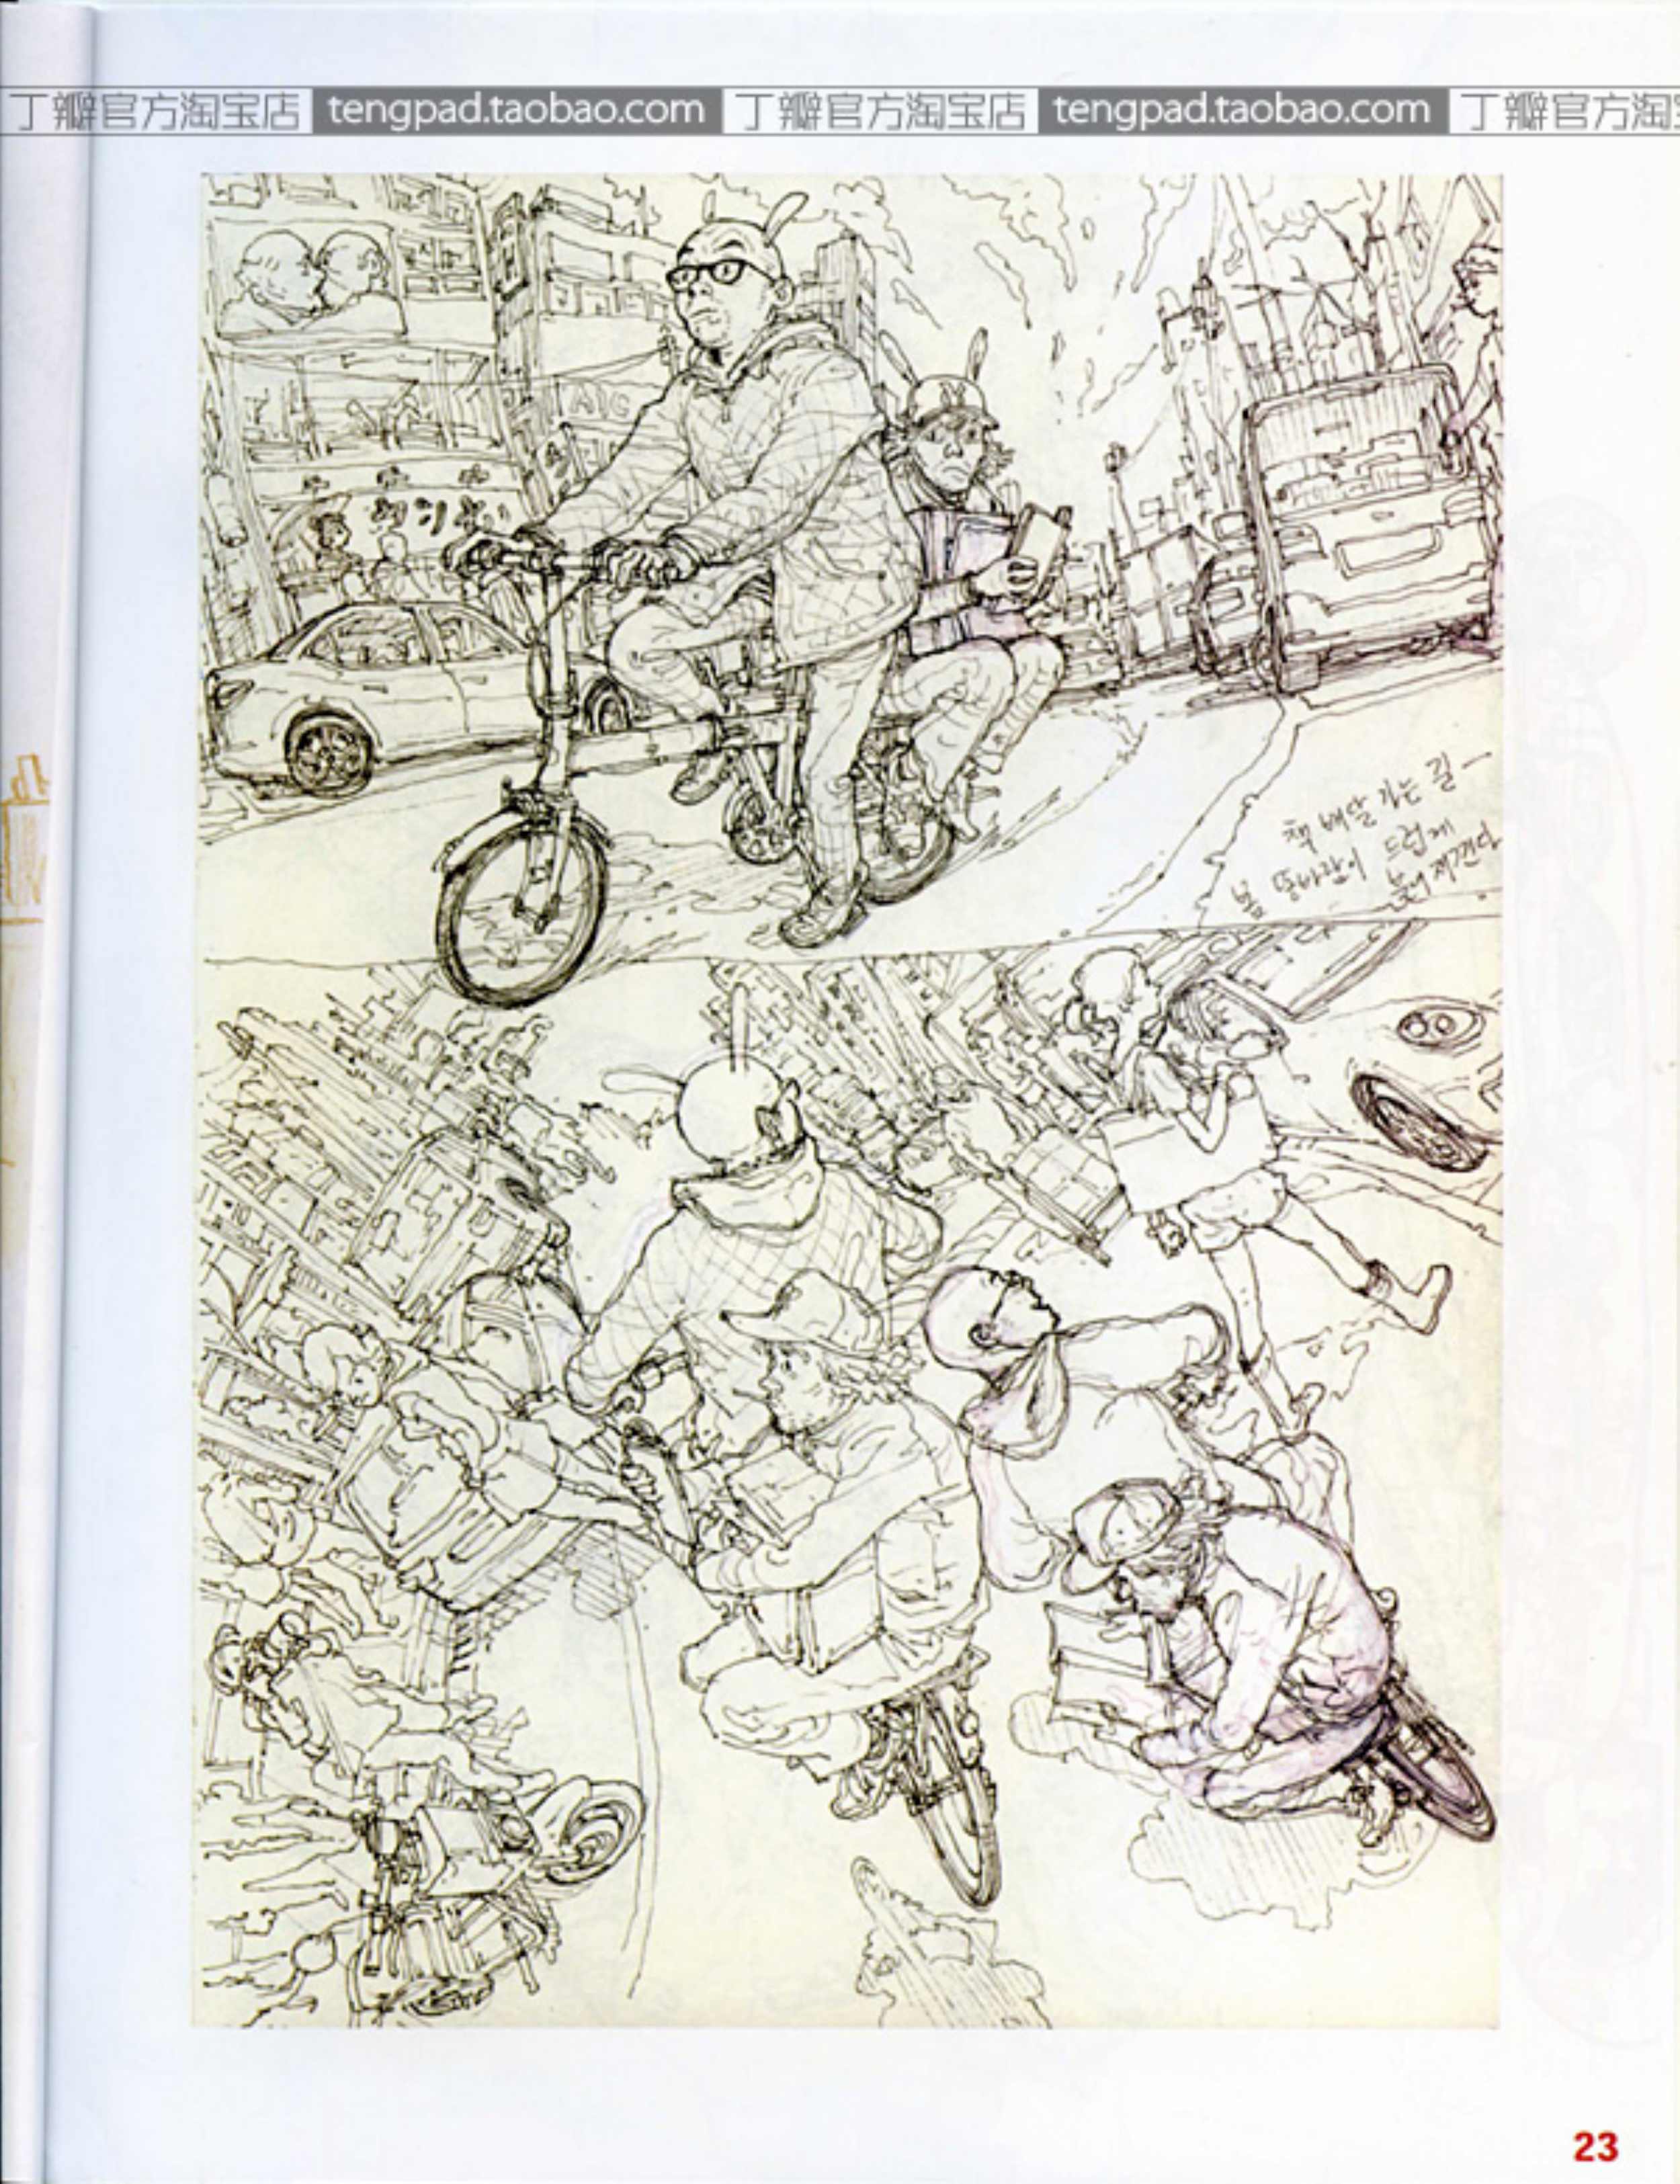 丁瓣官方淘宝店 tengpad.taobao.com 丁瓣官方淘宝店 tengpad.taobao.com 丁瓣官方淘宝
AIC
책 배달 가는 길 —
봄 똥바람이 드럽게
불어 재낀다
23